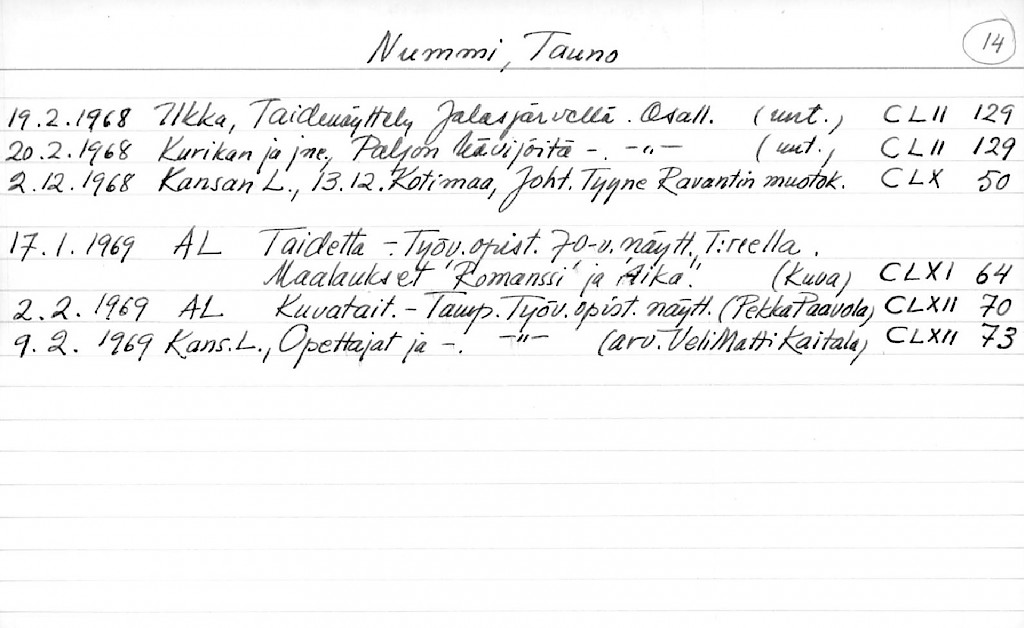 Nummi, Tauno
14
19.2.1968 Ilkka, Taidenäyttely Jalasjärvellä. Osall. (unt.) CLII 129
20.2.1968 Kurikan ja jne, Paljon kävijöitä -. -"- (unt., CLII 129
2.12.1968 Kansan L., 13.12. Kotimaa, Joht. Tyyne Ravantin muotok. CLX 50
17.1.1969 AL Taidetta - Työv.opist. 70-v. näytt. T:reella.
Maalaukset 'Romanssi' ja 'Aika'. (Kuva) CLXI 64
2.2.1969 AL Kuvatait. - Tamp. Työv.opist. näytt. (Pekka Paavola) CLXII 70
9.2.1969 Kans.L., Opettajat ja -. -"- (arv. Veli Matti Kaitala) CLXII 73